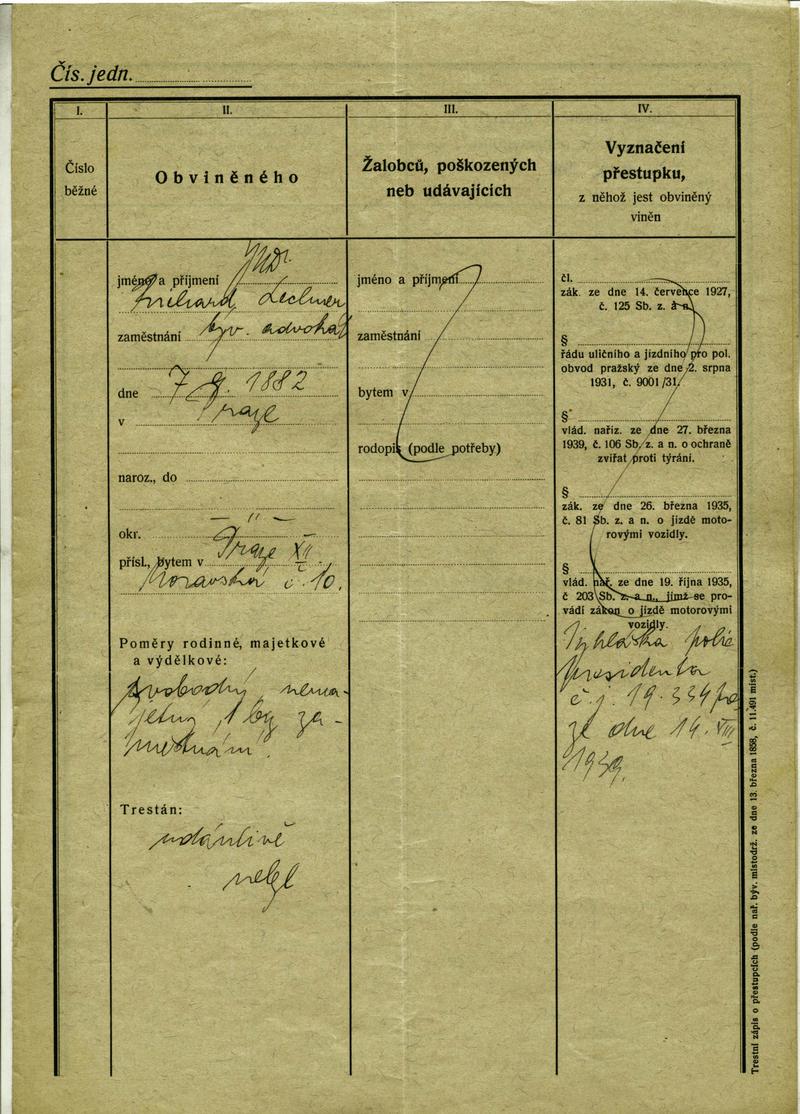 Čís. jedn.
I.
II.
III.
IV.
Číslo
běžné
Obviněného
Žalobců, poškozených
neb udávajících
Vyznačení
přestupku,
z něhož jest obviněný
viněn
JUDr.
jméno a příjmení
Lechner
zaměstnání býv. advokát
dne 7. 9. 1882
v Praze
naroz., do
okr. — " —
přísl., bytem v Praze XII
Moravská č. 10.
Poměry rodinné, majetkové
a výdělkové:
svobodný, nema-
jetný, bez za-
městnání.
Trestán:
udánlivě
nebyl
jméno a příjmení
zaměstnání
bytem v
rodopis (podle potřeby)
čl.
zák. ze dne 14. července 1927,
č. 125 Sb. z. a n.
§
řádu uličního a jízdního pro pol.
obvod pražský ze dne 2. srpna
1931, č. 9001/31.
§
vlád. naříz. ze dne 27. března
1939, č. 106 Sb. z. a n. o ochraně
zvířat proti týrání.
§
zák. ze dne 26. března 1935,
č. 81 Sb. z. a n. o jízdě moto-
rovými vozidly.
§
vlád. nař. ze dne 19. října 1935,
č 203 Sb. z. a n., jímž se pro-
vádí zákon o jízdě motorovými
vozidly.
Vyhláška polic
presidenta
č. j. 19.334
ze dne 14. VIII
1939.
Trestní zápis o přestupcích (podle nař. býv. místodrž. ze dne 13. března 1858, č. 11.491 míst.)